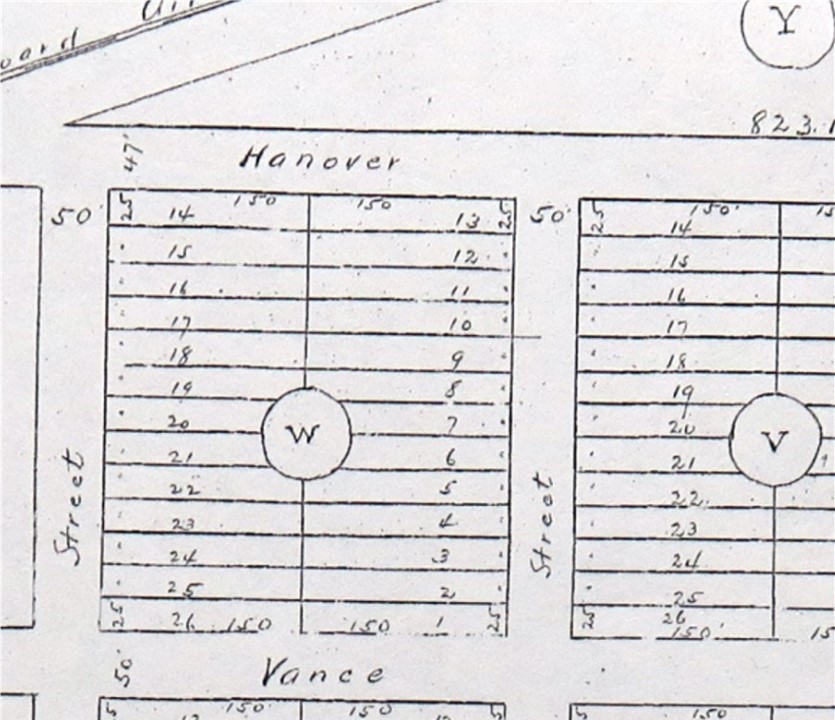 Y
823.
47'
Hanover
50' 25 150 150 25 50' 25 150'
14 13 14
15 12 15
16 11 16
17 10 17
18 9 18
19 8 19
20 W 7 20 V
21 6 21
22 5 22
23 4 23
24 3 24
25 2 25
25 26 150 150 1 25 25 26 150'
Street Street
50'
Vance
150' 150 150